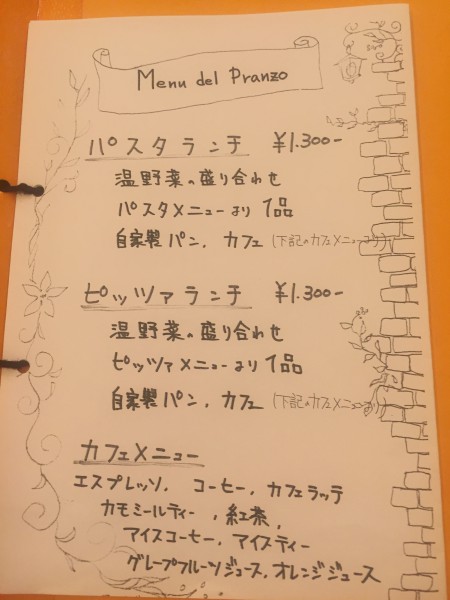 Menu del Pranzo
パスタランチ ¥1.300-
温野菜の盛り合わせ
パスタメニューより 1品
自家製パン、カフェ (下記のカフェメニューより)
ピッツァランチ ¥1.300-
温野菜の盛り合わせ
ピッツァメニューより 1品
自家製パン、カフェ (下記のカフェメニュー
カフェメニュー
エスプレッソ、 コーヒー、カフェラッテ
カモミールティー 、紅茶、
アイスコーヒー、アイスティー
グレープフルーツジュース、オレンジジュース